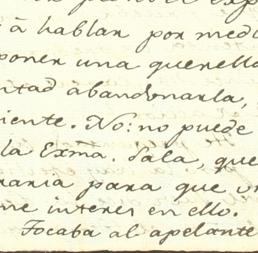 á hablar por medi
poner una querella
ntad abandonarla,
iente. No: no puede
la Exma. Sala, que
raria para que un
ne interes en ello.
Tocaba al apelante